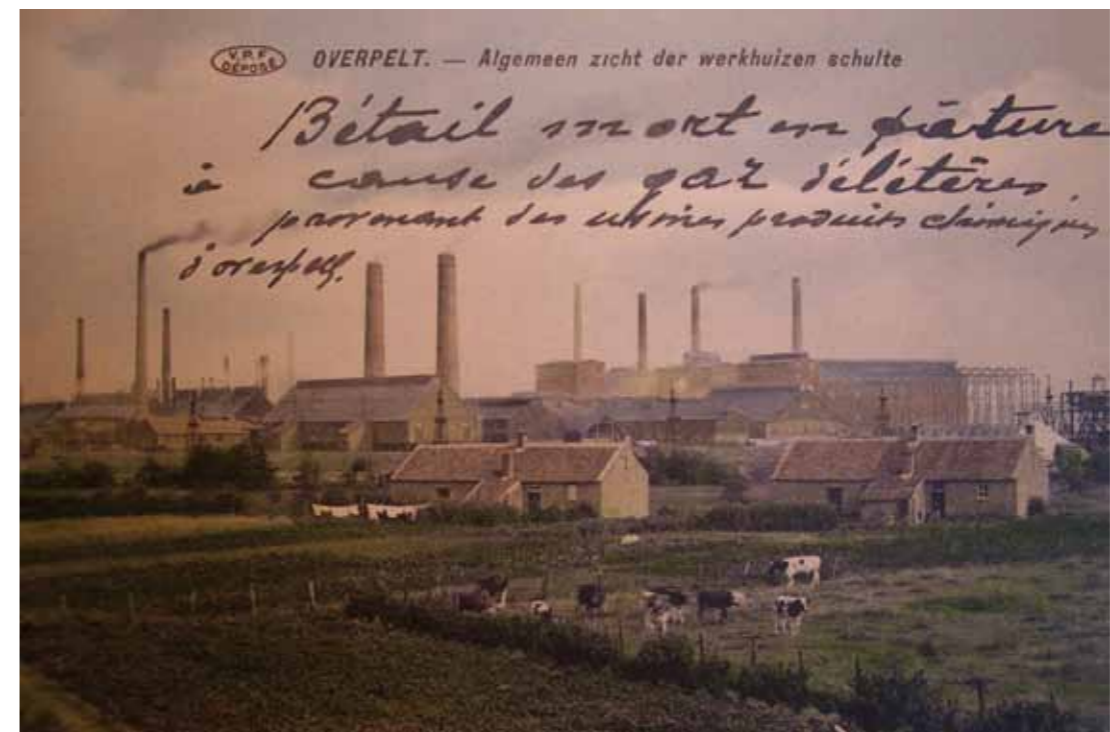 V.P.F.
DÉPOSÉ
OVERPELT. — Algemeen zicht der werkhuizen schulte
Bétail mort en pâture
à cause des gaz délétères
provenant des usines produits chimiques
d'overpelt.